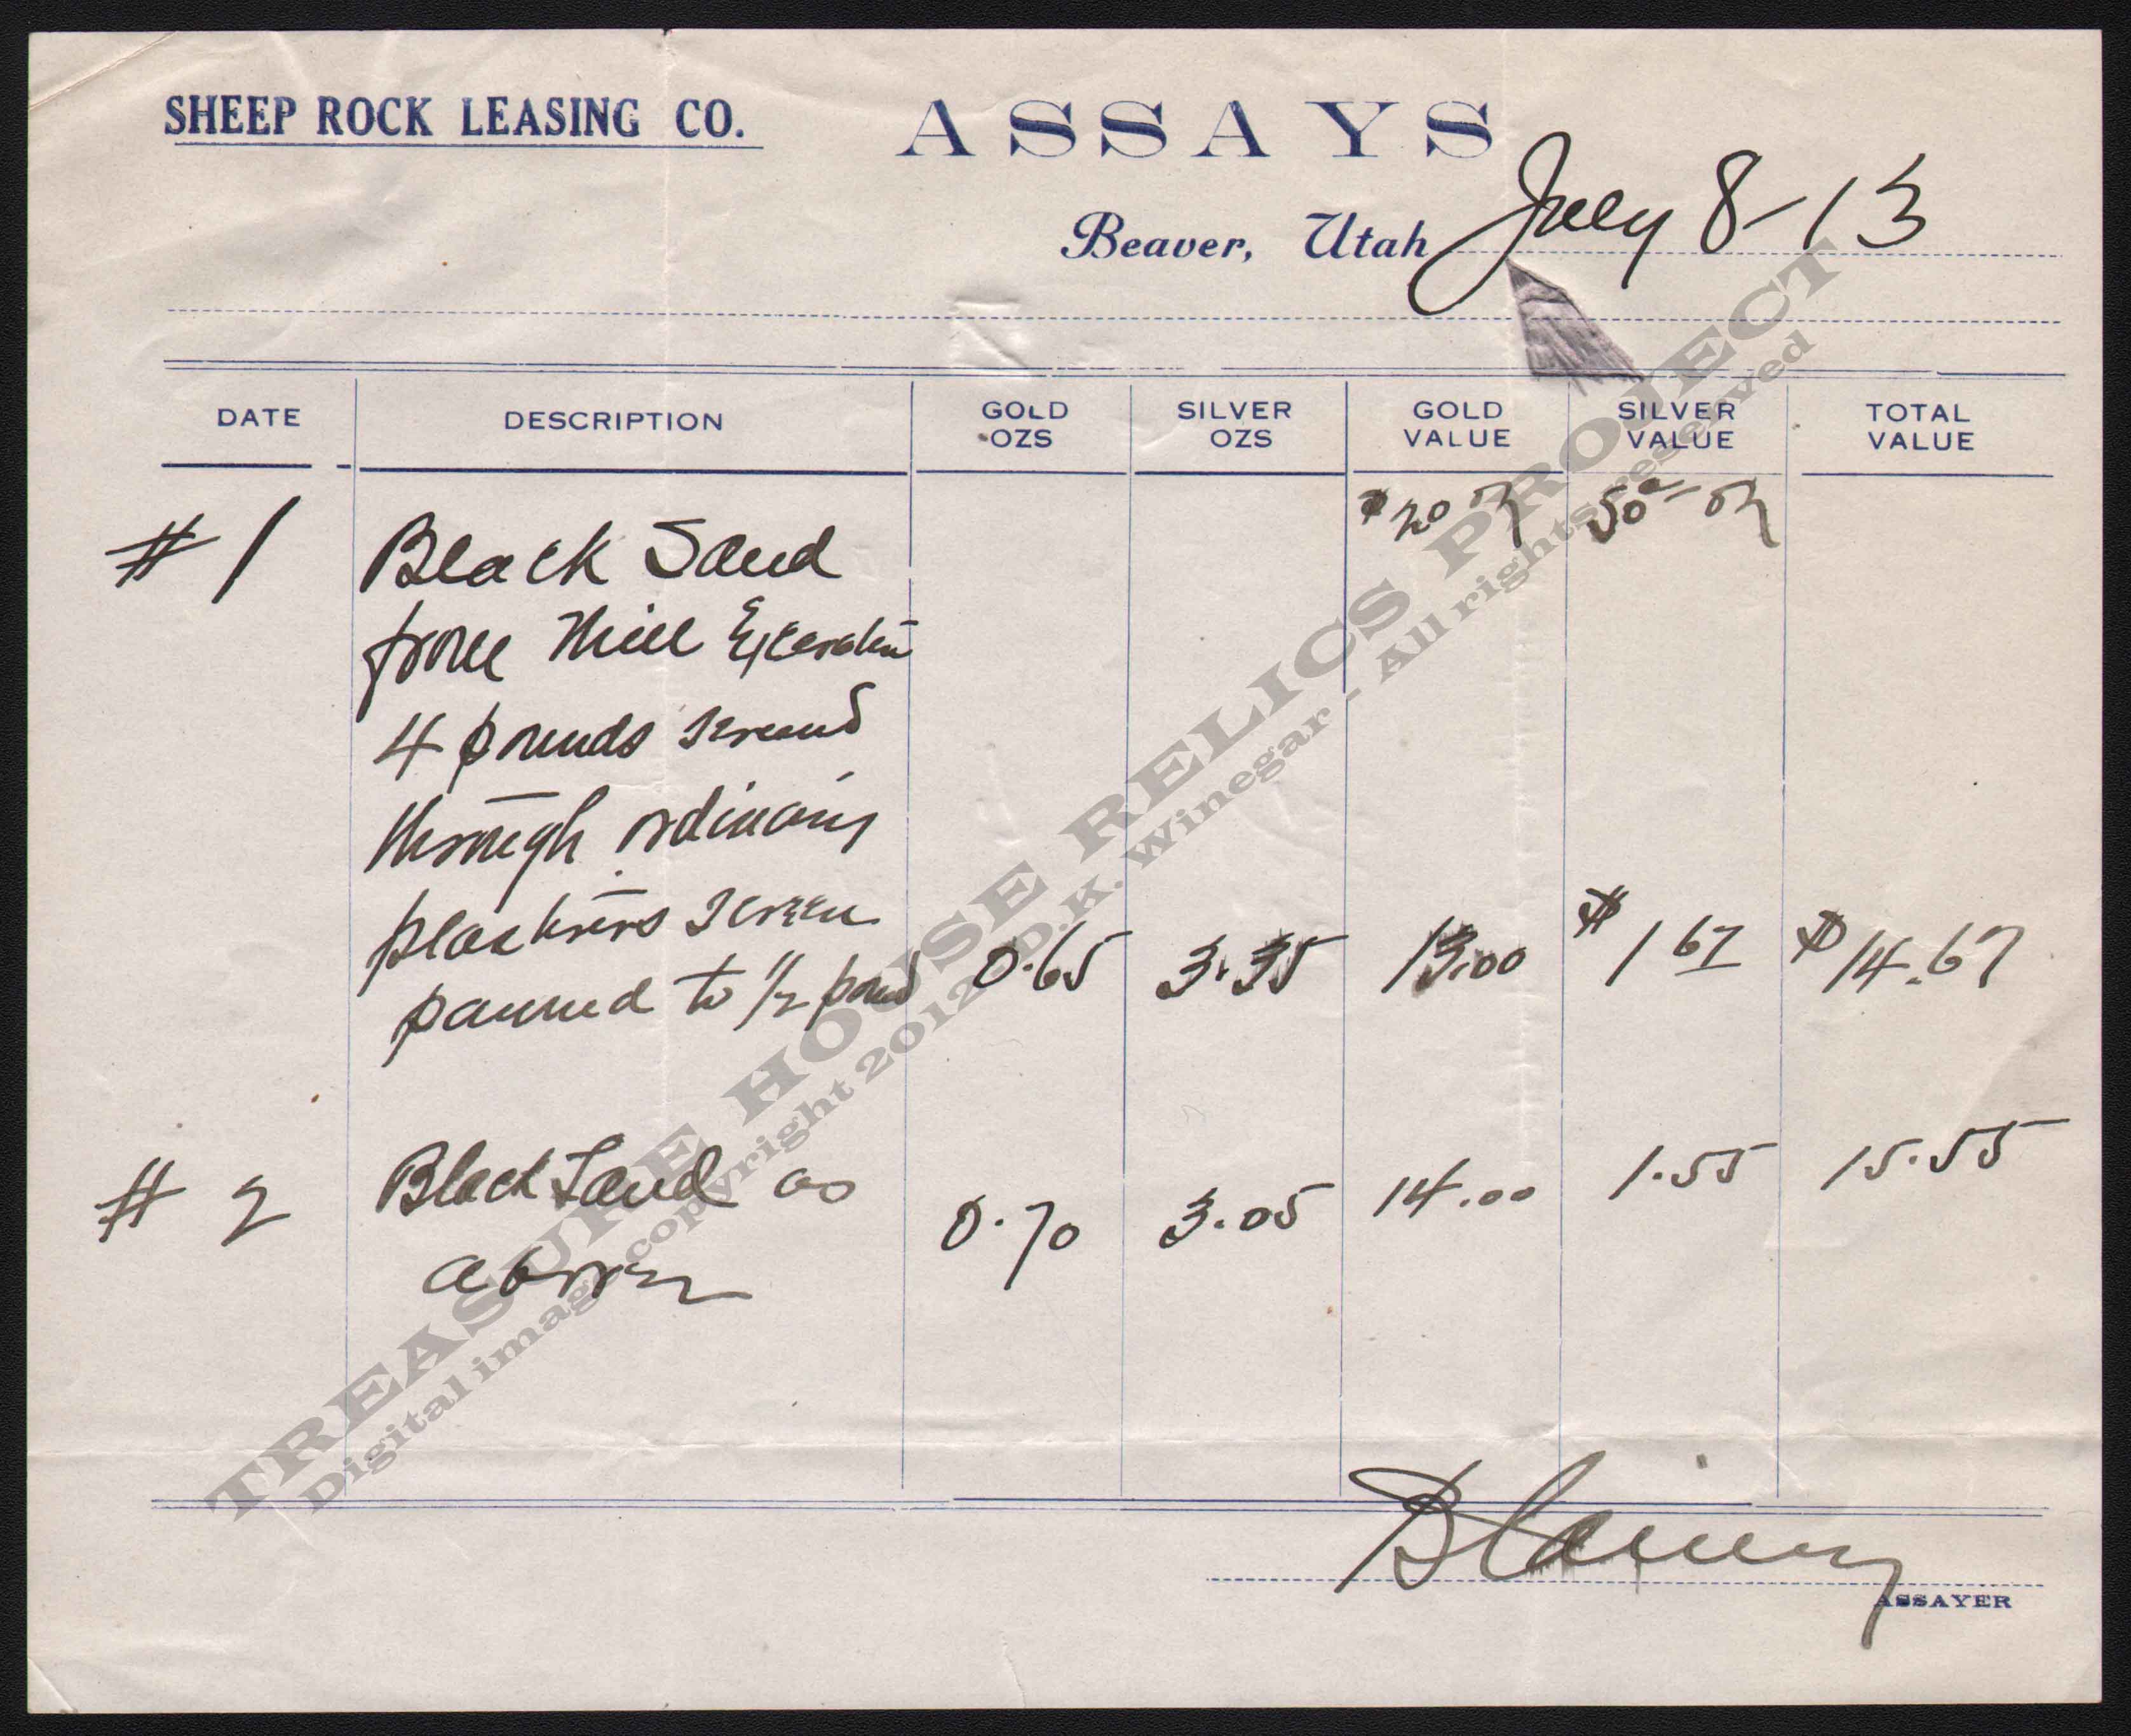 SHEEP ROCK LEASING CO. ASSAYS
Beaver, Utah July 8-13
DATE DESCRIPTION GOLD OZS SILVER OZS GOLD VALUE SILVER VALUE TOTAL VALUE
$20 oz 50¢ oz
#1 Black Sand
from Mill
4 pounds screened
through ordinary
plasterers screen
panned to 1/2 pound 0.65 3.35 13.00 $1 67 $14.67
#2 Black Sand as 0.70 3.05 14.00 1.55 15.55
above
ASSAYER
TREASURE HOUSE RELICS PROJECT
Digital image copyright 2012 D.K. Winegar - All rights reserved